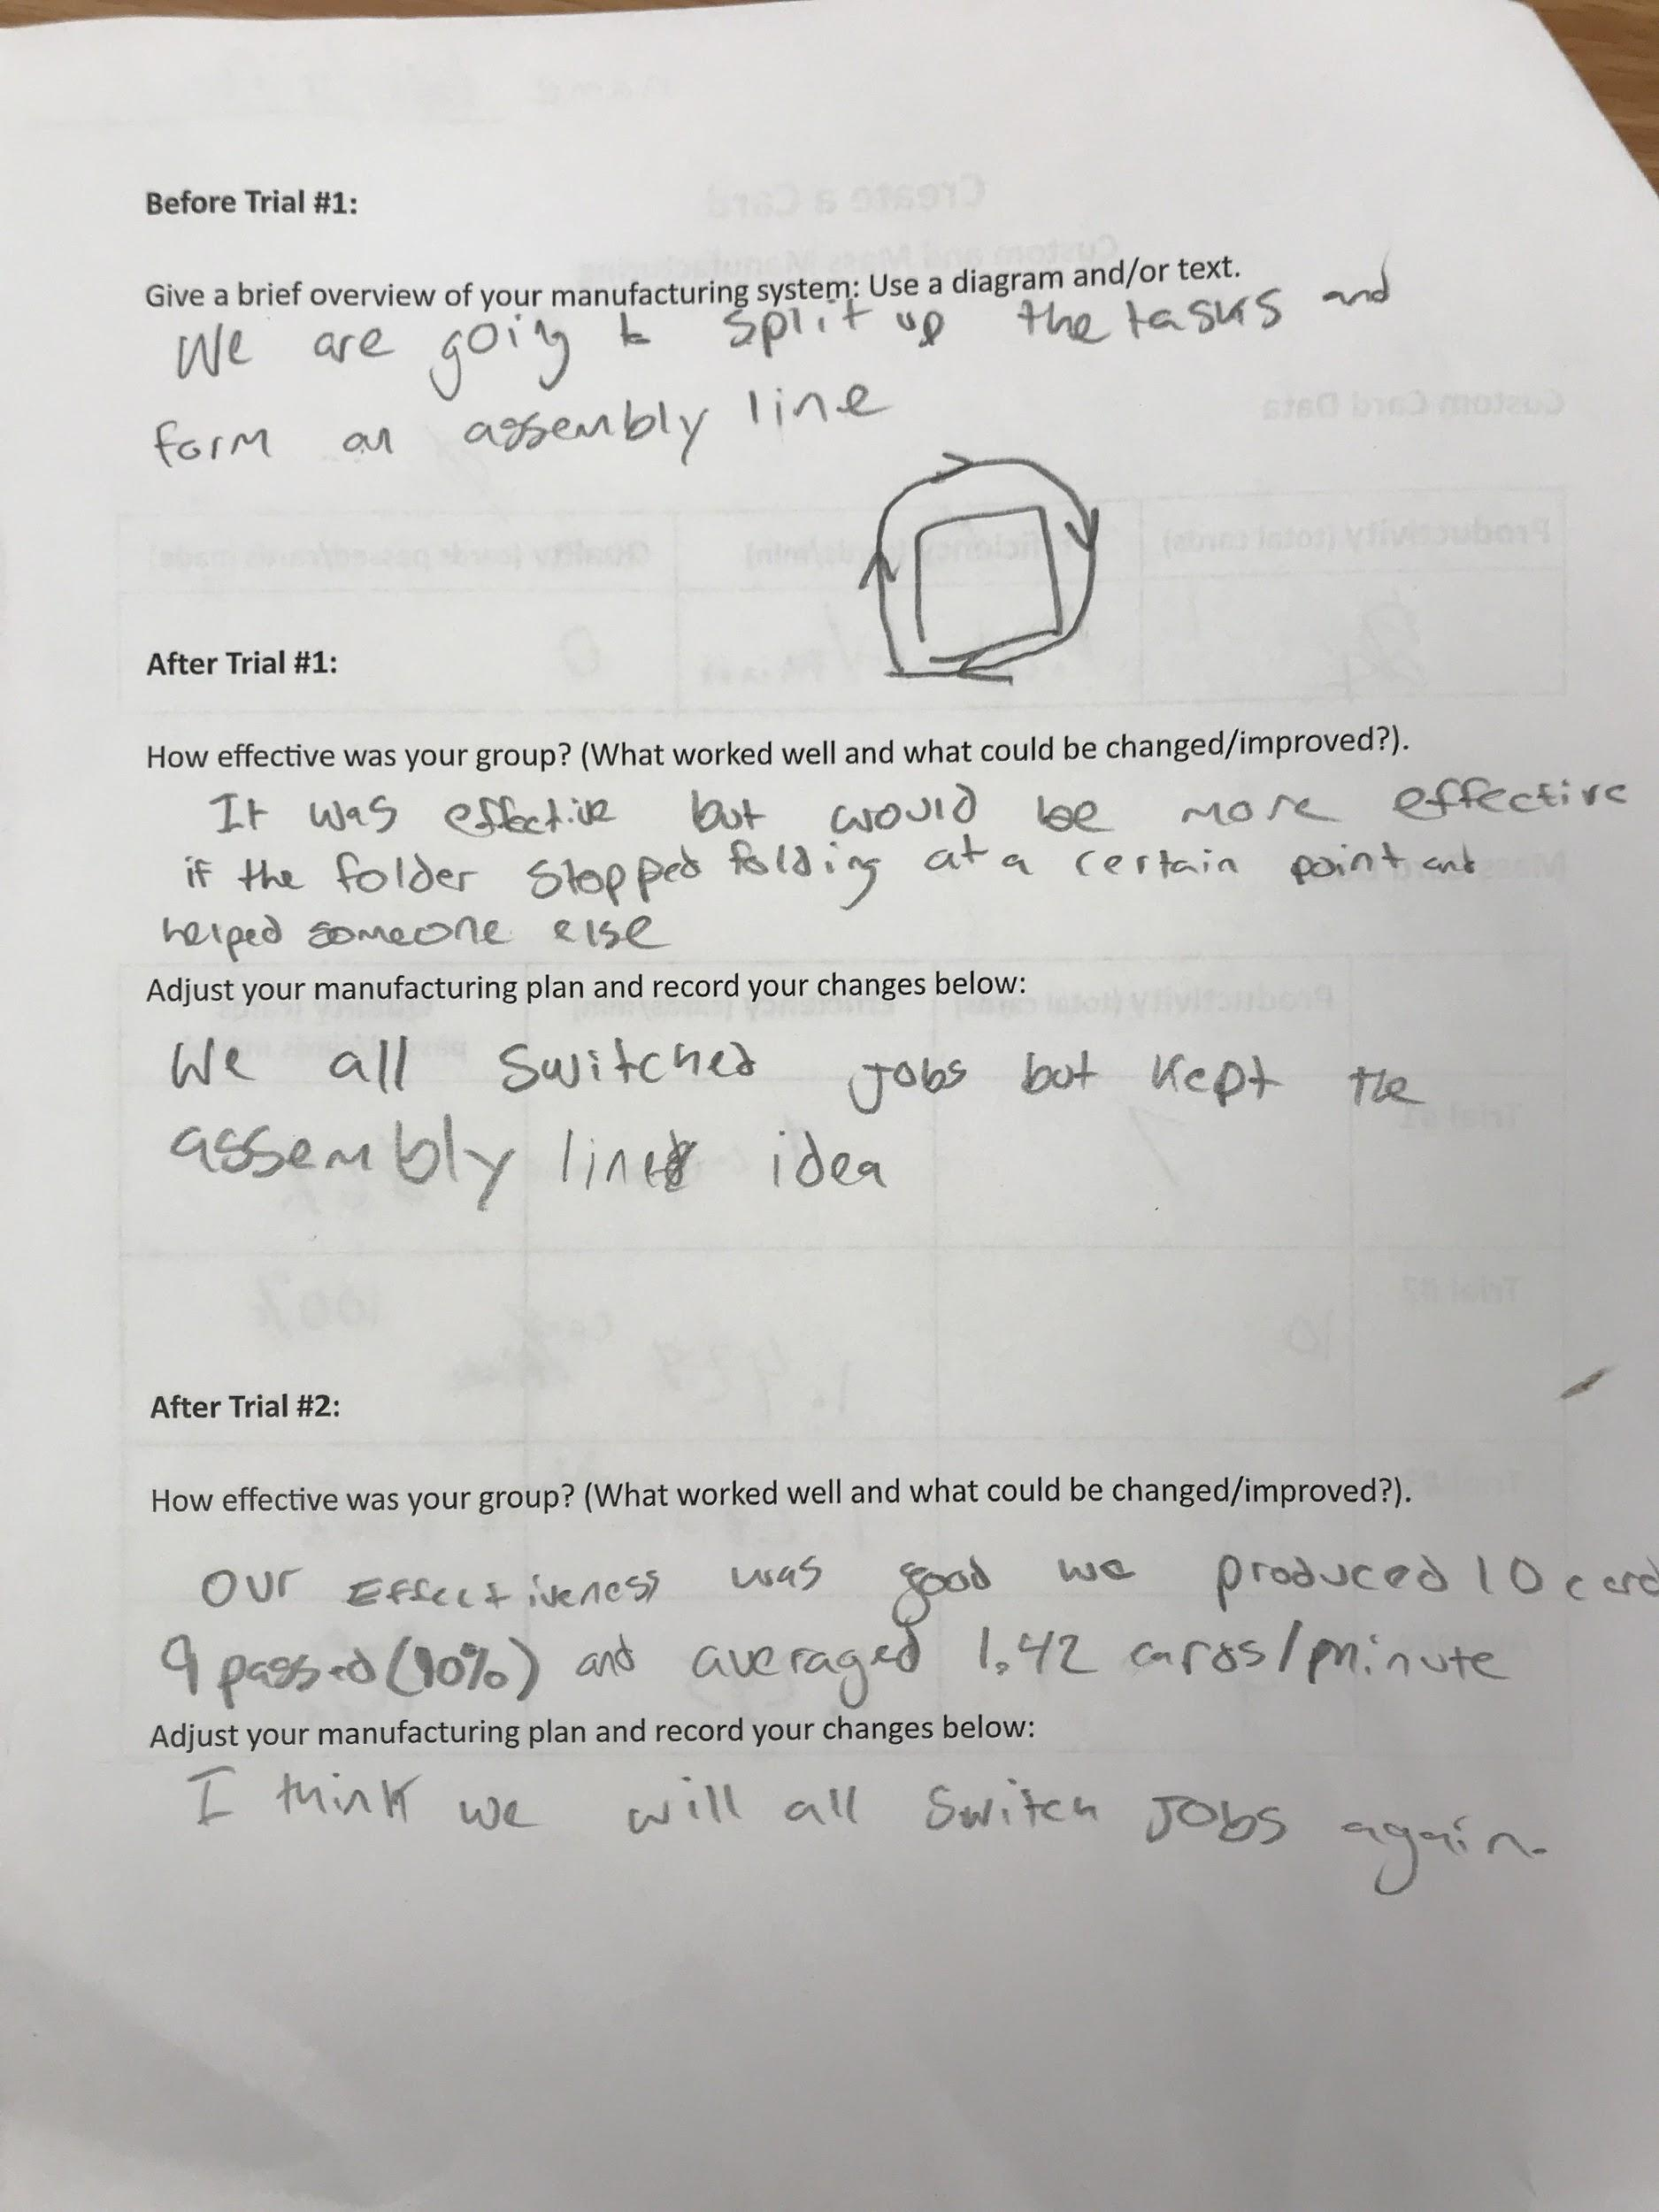 Before Trial #1:
Give a brief overview of your manufacturing system: Use a diagram and/or text.
We are going to split up the tasks and
form an assembly line
After Trial #1:
How effective was your group? (What worked well and what could be changed/improved?).
It was effective but would be more effective
if the folder stopped folding at a certain point and
helped someone else
Adjust your manufacturing plan and record your changes below:
We all switched jobs but kept the
assembly line idea
After Trial #2:
How effective was your group? (What worked well and what could be changed/improved?).
Our Effectiveness was good we produced 10 card
9 passed (90%) and averaged 1.42 cards/minute
Adjust your manufacturing plan and record your changes below:
I think we will all switch jobs again.